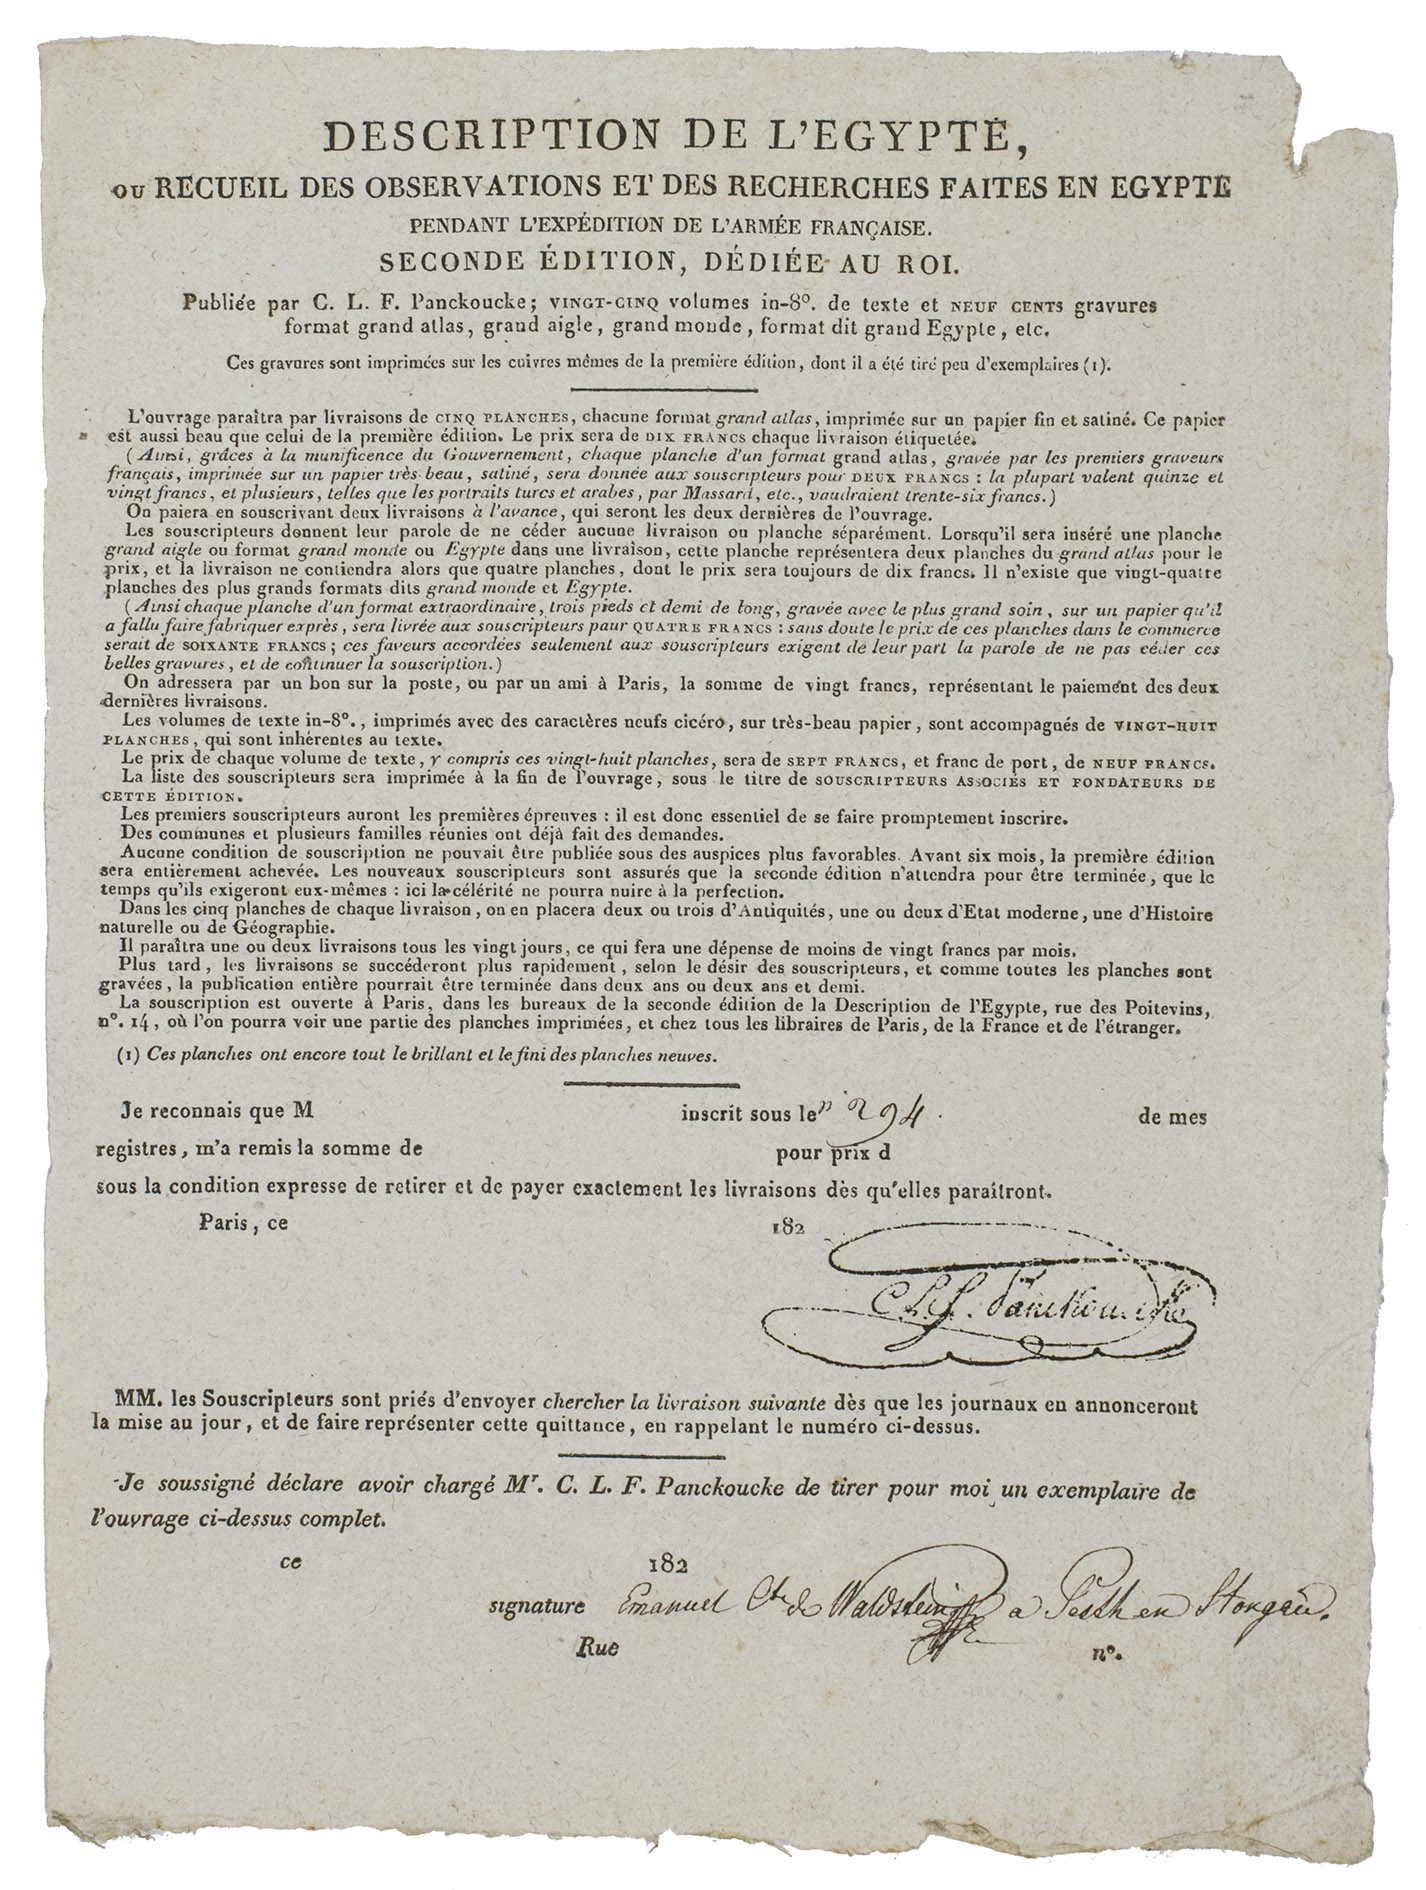 DESCRIPTION DE L'EGYPTE,
OU RECUEIL DES OBSERVATIONS ET DES RECHERCHES FAITES EN EGYPTE
PENDANT L'EXPÉDITION DE L'ARMÉE FRANÇAISE.
SECONDE ÉDITION, DÉDIÉE AU ROI.
Publiée par C. L. F. Panckoucke; VINGT-CINQ volumes in-8º. de texte et NEUF CENTS gravures
format grand atlas, grand aigle, grand monde, format dit grand Egypte, etc.
Ces gravures sont imprimées sur les cuivres mêmes de la première édition, dont il a été tiré peu d'exemplaires (1).
L'ouvrage paraîtra par livraisons de CINQ PLANCHES, chacune format grand atlas, imprimée sur un papier fin et satiné. Ce papier
est aussi beau que celui de la première édition. Le prix sera de DIX FRANCS chaque livraison étiquetée.
(Ainsi, grâces à la munificence du Gouvernement, chaque planche d'un format grand atlas, gravée par les premiers graveurs
français, imprimée sur un papier très-beau, satiné, sera donnée aux souscripteurs pour DEUX FRANCS : la plupart valent quinze et
vingt francs, et plusieurs, telles que les portraits turcs et arabes, par Massard, etc., vaudraient trente-six francs.)
On paiera en souscrivant deux livraisons à l'avance, qui seront les deux dernières de l'ouvrage.
Les souscripteurs donnent leur parole de ne céder aucune livraison ou planche séparément. Lorsqu'il sera inséré une planche
grand aigle ou format grand monde ou Egypte dans une livraison, cette planche représentera deux planches du grand atlas pour le
prix, et la livraison ne contiendra alors que quatre planches, dont le prix sera toujours de dix francs. Il n'existe que vingt-quatre
planches des plus grands formats dits grand monde et Egypte.
(Ainsi chaque planche d'un format extraordinaire, trois pieds et demi de long, gravée avec le plus grand soin, sur un papier qu'il
a fallu faire fabriquer exprès, sera livrée aux souscripteurs paur QUATRE FRANCS : sans doute le prix de ces planches dans le commerce
serait de SOIXANTE FRANCS ; ces faveurs accordées seulement aux souscripteurs exigent de leur part la parole de ne pas céder ces
belles gravures, et de continuer la souscription.)
On adressera par un bon sur la poste, ou par un ami à Paris, la somme de vingt francs, représentant le paiement des deux
dernières livraisons.
Les volumes de texte in-8º., imprimés avec des caractères neufs cicéro, sur très-beau papier, sont accompagnés de VINGT-HUIT
PLANCHES, qui sont inhérentes au texte.
Le prix de chaque volume de texte, y compris ces vingt-huit planches, sera de SEPT FRANCS, et franc de port, de NEUF FRANCS.
La liste des souscripteurs sera imprimée à la fin de l'ouvrage, sous le titre de SOUSCRIPTEURS ASSOCIÉS ET FONDATEURS DE
CETTE ÉDITION.
Les premiers souscripteurs auront les premières épreuves : il est donc essentiel de se faire promptement inscrire.
Des communes et plusieurs familles réunies ont déjà fait des demandes.
Aucune condition de souscription ne pouvait être publiée sous des auspices plus favorables. Avant six mois, la première édition
sera entièrement achevée. Les nouveaux souscripteurs sont assurés que la seconde édition n'attendra pour être terminée, que le
temps qu'ils exigeront eux-mêmes : ici la célérité ne pourra nuire à la perfection.
Dans les cinq planches de chaque livraison, on en placera deux ou trois d'Antiquités, une ou deux d'Etat moderne, une d'Histoire
naturelle ou de Géographie.
Il paraîtra une ou deux livraisons tous les vingt jours, ce qui fera une dépense de moins de vingt francs par mois.
Plus tard, les livraisons se succéderont plus rapidement, selon le désir des souscripteurs, et comme toutes les planches sont
gravées, la publication entière pourrait être terminée dans deux ans ou deux ans et demi.
La souscription est ouverte à Paris, dans les bureaux de la seconde édition de la Description de l'Egypte, rue des Poitevins,
nº. 14, où l'on pourra voir une partie des planches imprimées, et chez tous les libraires de Paris, de la France et de l'étranger.
(1) Ces planches ont encore tout le brillant et le fini des planches neuves.
Je reconnais que M inscrit sous le nº 294. de mes
registres, m'a remis la somme de pour prix d
sous la condition expresse de retirer et de payer exactement les livraisons dès qu'elles paraîtront.
Paris, ce 182
C. L. F. Panckoucke
MM. les Souscripteurs sont priés d'envoyer chercher la livraison suivante dès que les journaux en annonceront
la mise au jour, et de faire représenter cette quittance, en rappelant le numéro ci-dessus.
Je soussigné déclare avoir chargé Mr. C. L. F. Panckoucke de tirer pour moi un exemplaire de
l'ouvrage ci-dessus complet.
ce 182
signature Emanuel Cte de Waldstein a Pesth en
Rue nº.